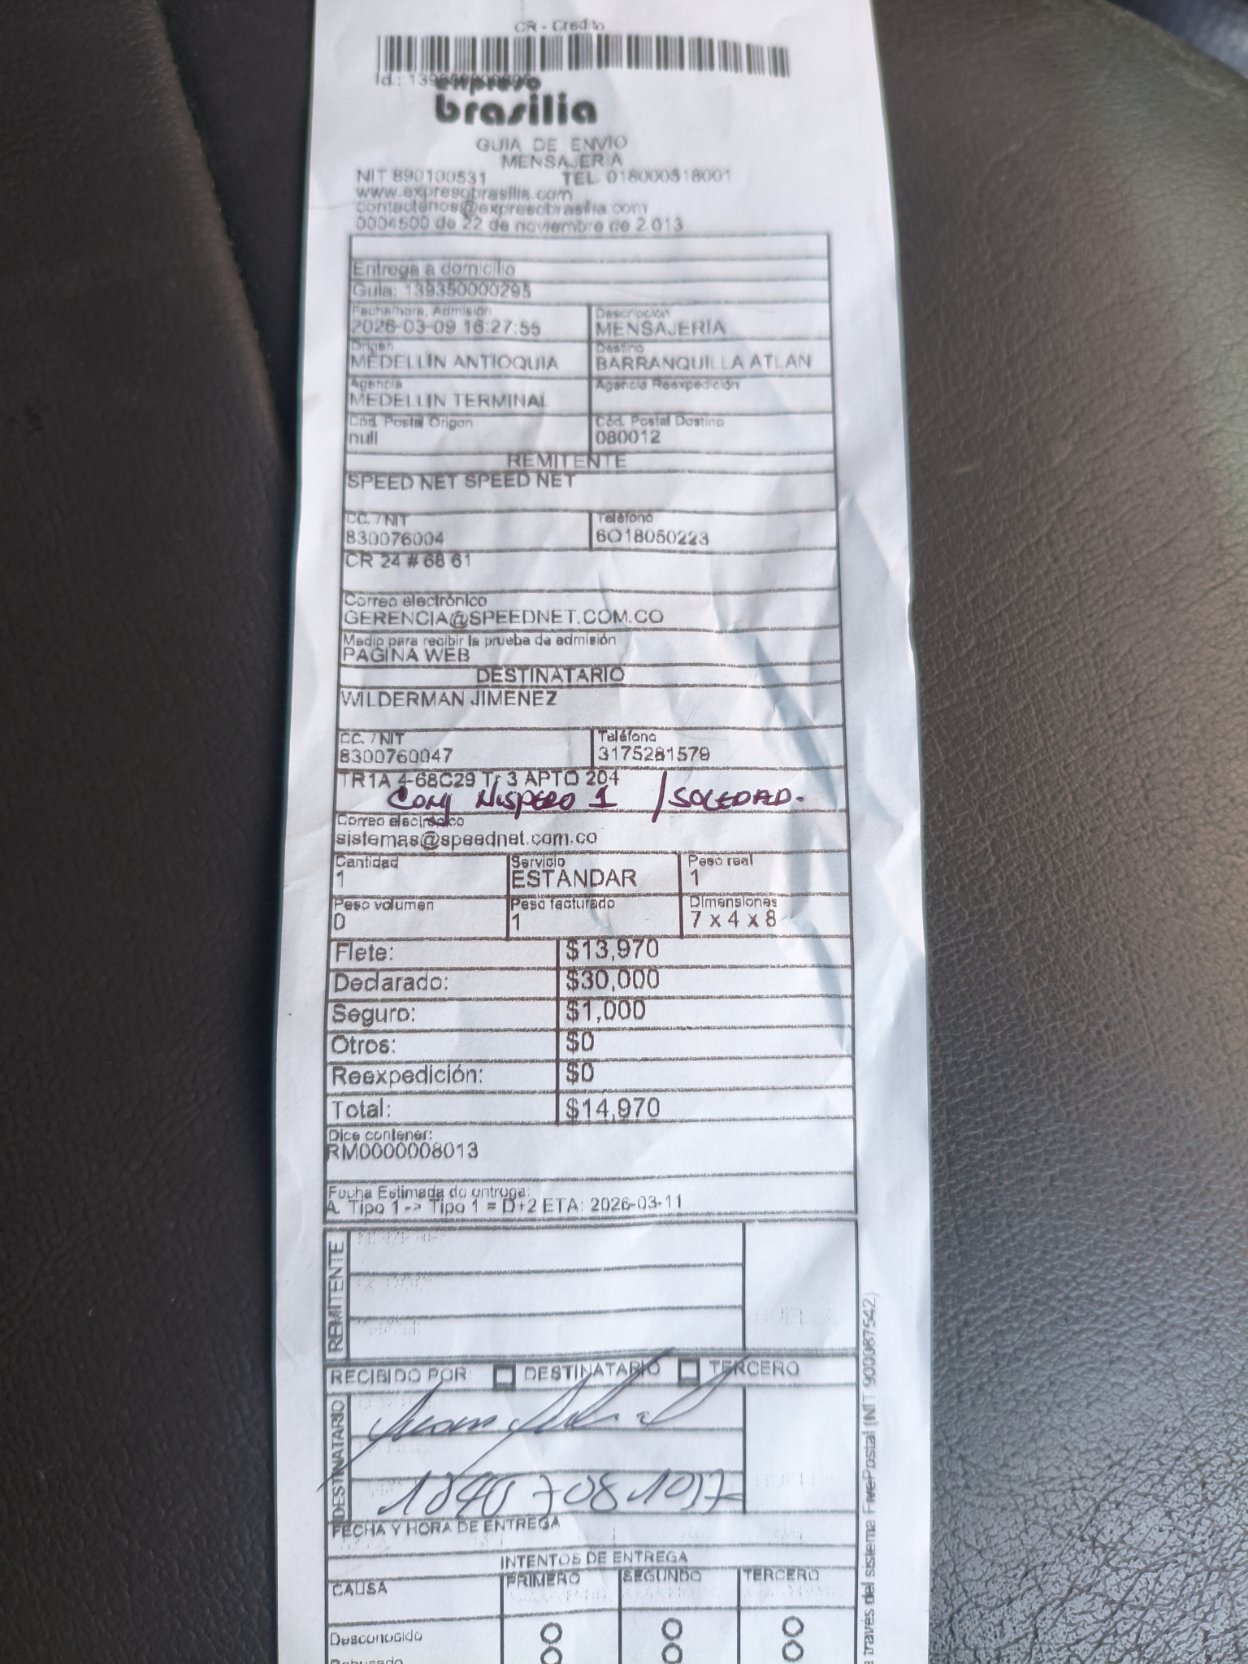 CR - Credito
Id.: 139350000295
expreso
brasilia
GUIA DE ENVIO
MENSAJERIA
NIT 890100531 TEL. 018000518001
www.expresobrasilia.com
contactenos@expresobrasilia.com
0004500 de 22 de noviembre de 2.013
Entrega a domicilio
Guia: 139350000295
Fecha/hora. Admisión Descripción
2026-03-09 16:27:55 MENSAJERIA
Origen Destino
MEDELLIN ANTIOQUIA BARRANQUILLA ATLAN
Agencia Agencia Reexpedición
MEDELLIN TERMINAL
Cód. Postal Origen Cód. Postal Destino
null 080012
REMITENTE
SPEED NET SPEED NET
CC. / NIT Teléfono
830076004 6018050223
CR 24 # 68 61
Correo electrónico
GERENCIA@SPEEDNET.COM.CO
Medio para recibir la prueba de admisión
PAGINA WEB
DESTINATARIO
WILDERMAN JIMENEZ
CC. / NIT Teléfono
8300760047 3175281579
TR1A 4-68C29 Tr 3 APTO 204
Conj Nispero 1 / SOLEDAD.
Correo electrónico
sistemas@speednet.com.co
Cantidad Servicio Peso real
1 ESTANDAR 1
Peso volumen Peso facturado Dimensiones
0 1 7 x 4 x 8
Flete: $13,970
Declarado: $30,000
Seguro: $1,000
Otros: $0
Reexpedición: $0
Total: $14,970
Dice contener:
RM0000008013
Fecha Estimada de entrega:
A. Tipo 1 -> Tipo 1 = D+2 ETA: 2026-03-11
REMITENTE
RECIBIDO POR: DESTINATARIO TERCERO
DESTINATARIO
FECHA Y HORA DE ENTREGA
INTENTOS DE ENTREGA
CAUSA PRIMERO SEGUNDO TERCERO
Desconocido
Rehusado
a través del sistema FivePostal (NIT 900087542)